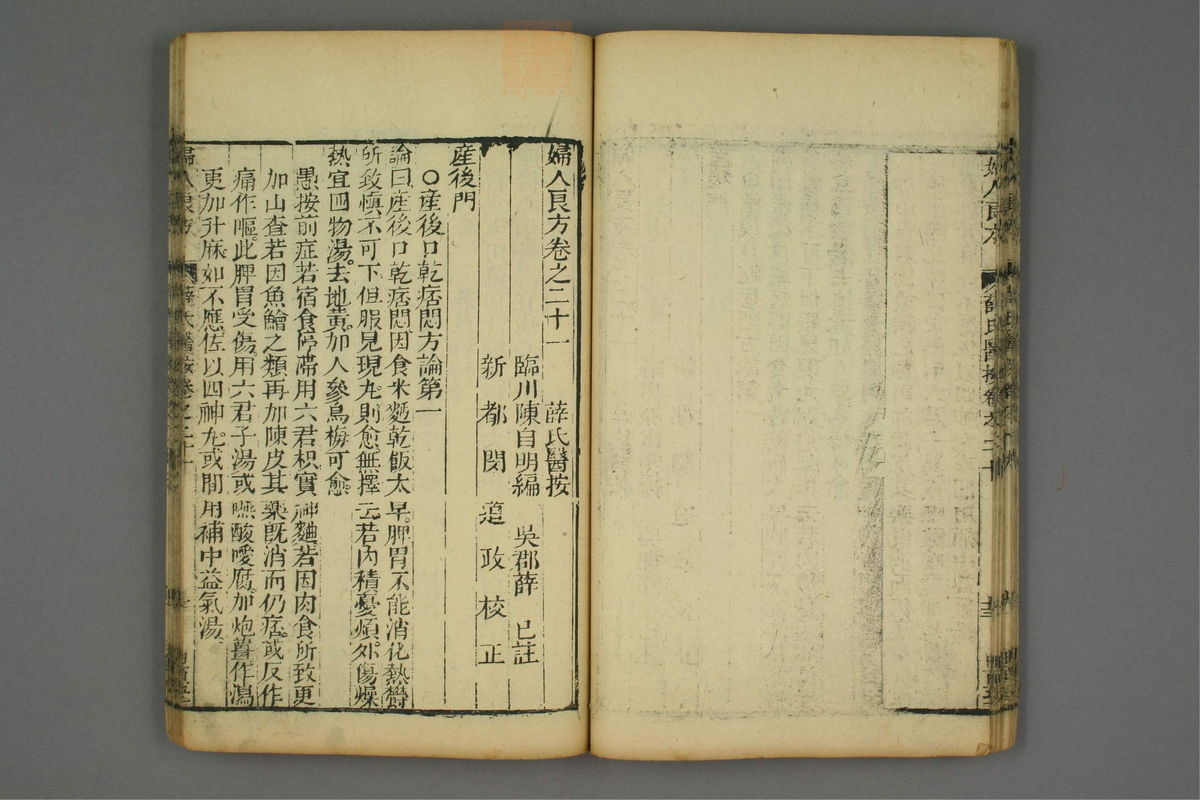 婦人良方卷之二十　薛氏醫按卷之二十
婦人良方卷之二十一　薛氏醫按
臨川陳自明編　吳郡薛　已註
新都閔　道政校正
産後門
○産後口乾痞悶方論第一
論曰産後口乾痞悶因食米麵乾飯太早脾胃不能消化熱欎
所致慎不可下但服見現丸則愈無擇云若內積憂煩外傷燥
熱宜四物湯去地黃加人參烏梅可愈
愚按前症若宿食停滯用六君枳實神麯若因肉食所致更
加山查若因魚鱠之類再加陳皮其藥旣消而仍痞或反作
痛作嘔此脾胃受傷用六君子湯或嚥酸噯腐加炮薑作瀉
更加升麻如不應佐以四神丸或間用補中益氣湯
婦人良方　薛氏醫按卷之二十一